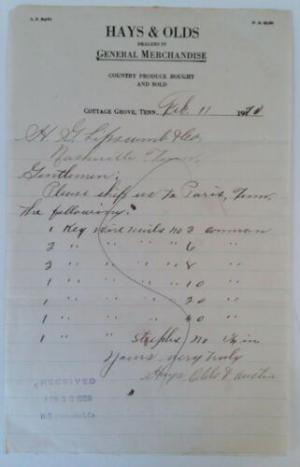 HAYS & OLDS
DEALERS IN
GENERAL MERCHANDISE
COUNTRY PRODUCE BOUGHT
AND SOLD
COTTAGE GROVE, TENN., Feb. 11 19
H. G. Lipscomb & Co.
Nashville Tenn.
Gentlemen:
Please ship us to Paris, Tenn.
the following:
1 Keg wire nails no 2 common
2 " " " " 6 "
2 " " " " 8 "
1 " " " " 10 "
1 " " " " 20 "
1 " " " " 40 "
1 " staples no in
Yours very truly
Hays Olds &
RECEIVED